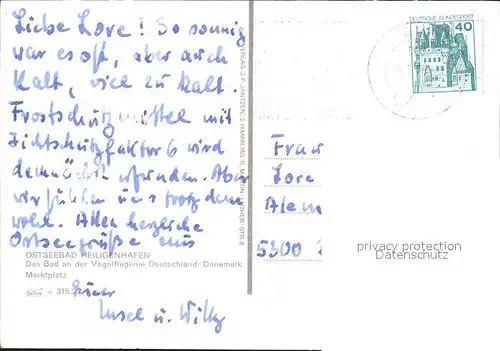 Liebe Lore! So sonnig
war es oft, aber auch
kalt, viel zu kalt.
Frostschutzmittel mit
Lichtschutzfaktor 6 wird
demnächst erfunden. Aber
wir fühlen uns trotzdem
wohl. Allen herzliche
Ostseegrüße aus
OSTSEEBAD HEILIGENHAFEN
Das Bad an der Vogelfluglinie Deutschland-Dänemark
Marktplatz
315
Eure
Insel u. Willy
VERLAG J. P. JANTZEN, 2 HAMBURG 11, MARTIN-LUTHER-STR. 8
DEUTSCHE BUNDESPOST
40
Frau
Lore
Alem
5300
privacy protection
Datenschutz